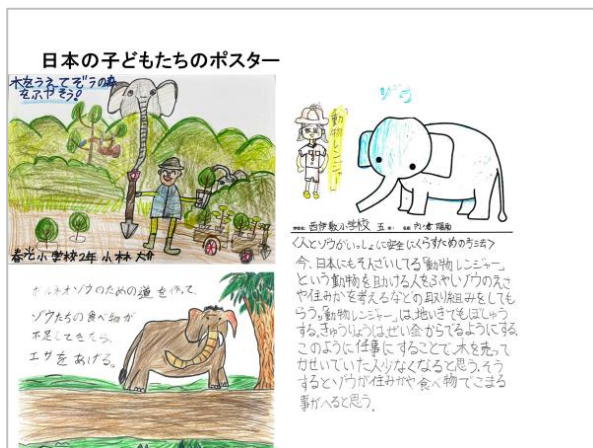 日本の子どもたちのポスター
木をうえてぞうの森
をふやそう!
春光小学校2年 小林 大介
ボルネオゾウのための道を作って、
ゾウたちの食べ物が
不足してきたら、
エサをあげる。
ゾウ
動物レンジャー
西伊敷小学校 五
〈人とゾウがいっしょに安全にくらすための方法〉
今、日本にもそんざいしてる「動物レンジャー」
という動物を助ける人をふやし、ゾウのえさ
や住みかを考えるなどの取り組みをしても
らう。「動物レンジャー」は、地いきでもぼしゅう
する。きゅうりょうはぜい金からでるようにする。
このように仕事にすることで、木を売って
かせいでいた人少なくなると思う。そう
するとゾウが住みかや食べ物でこまる
事がへると思う。